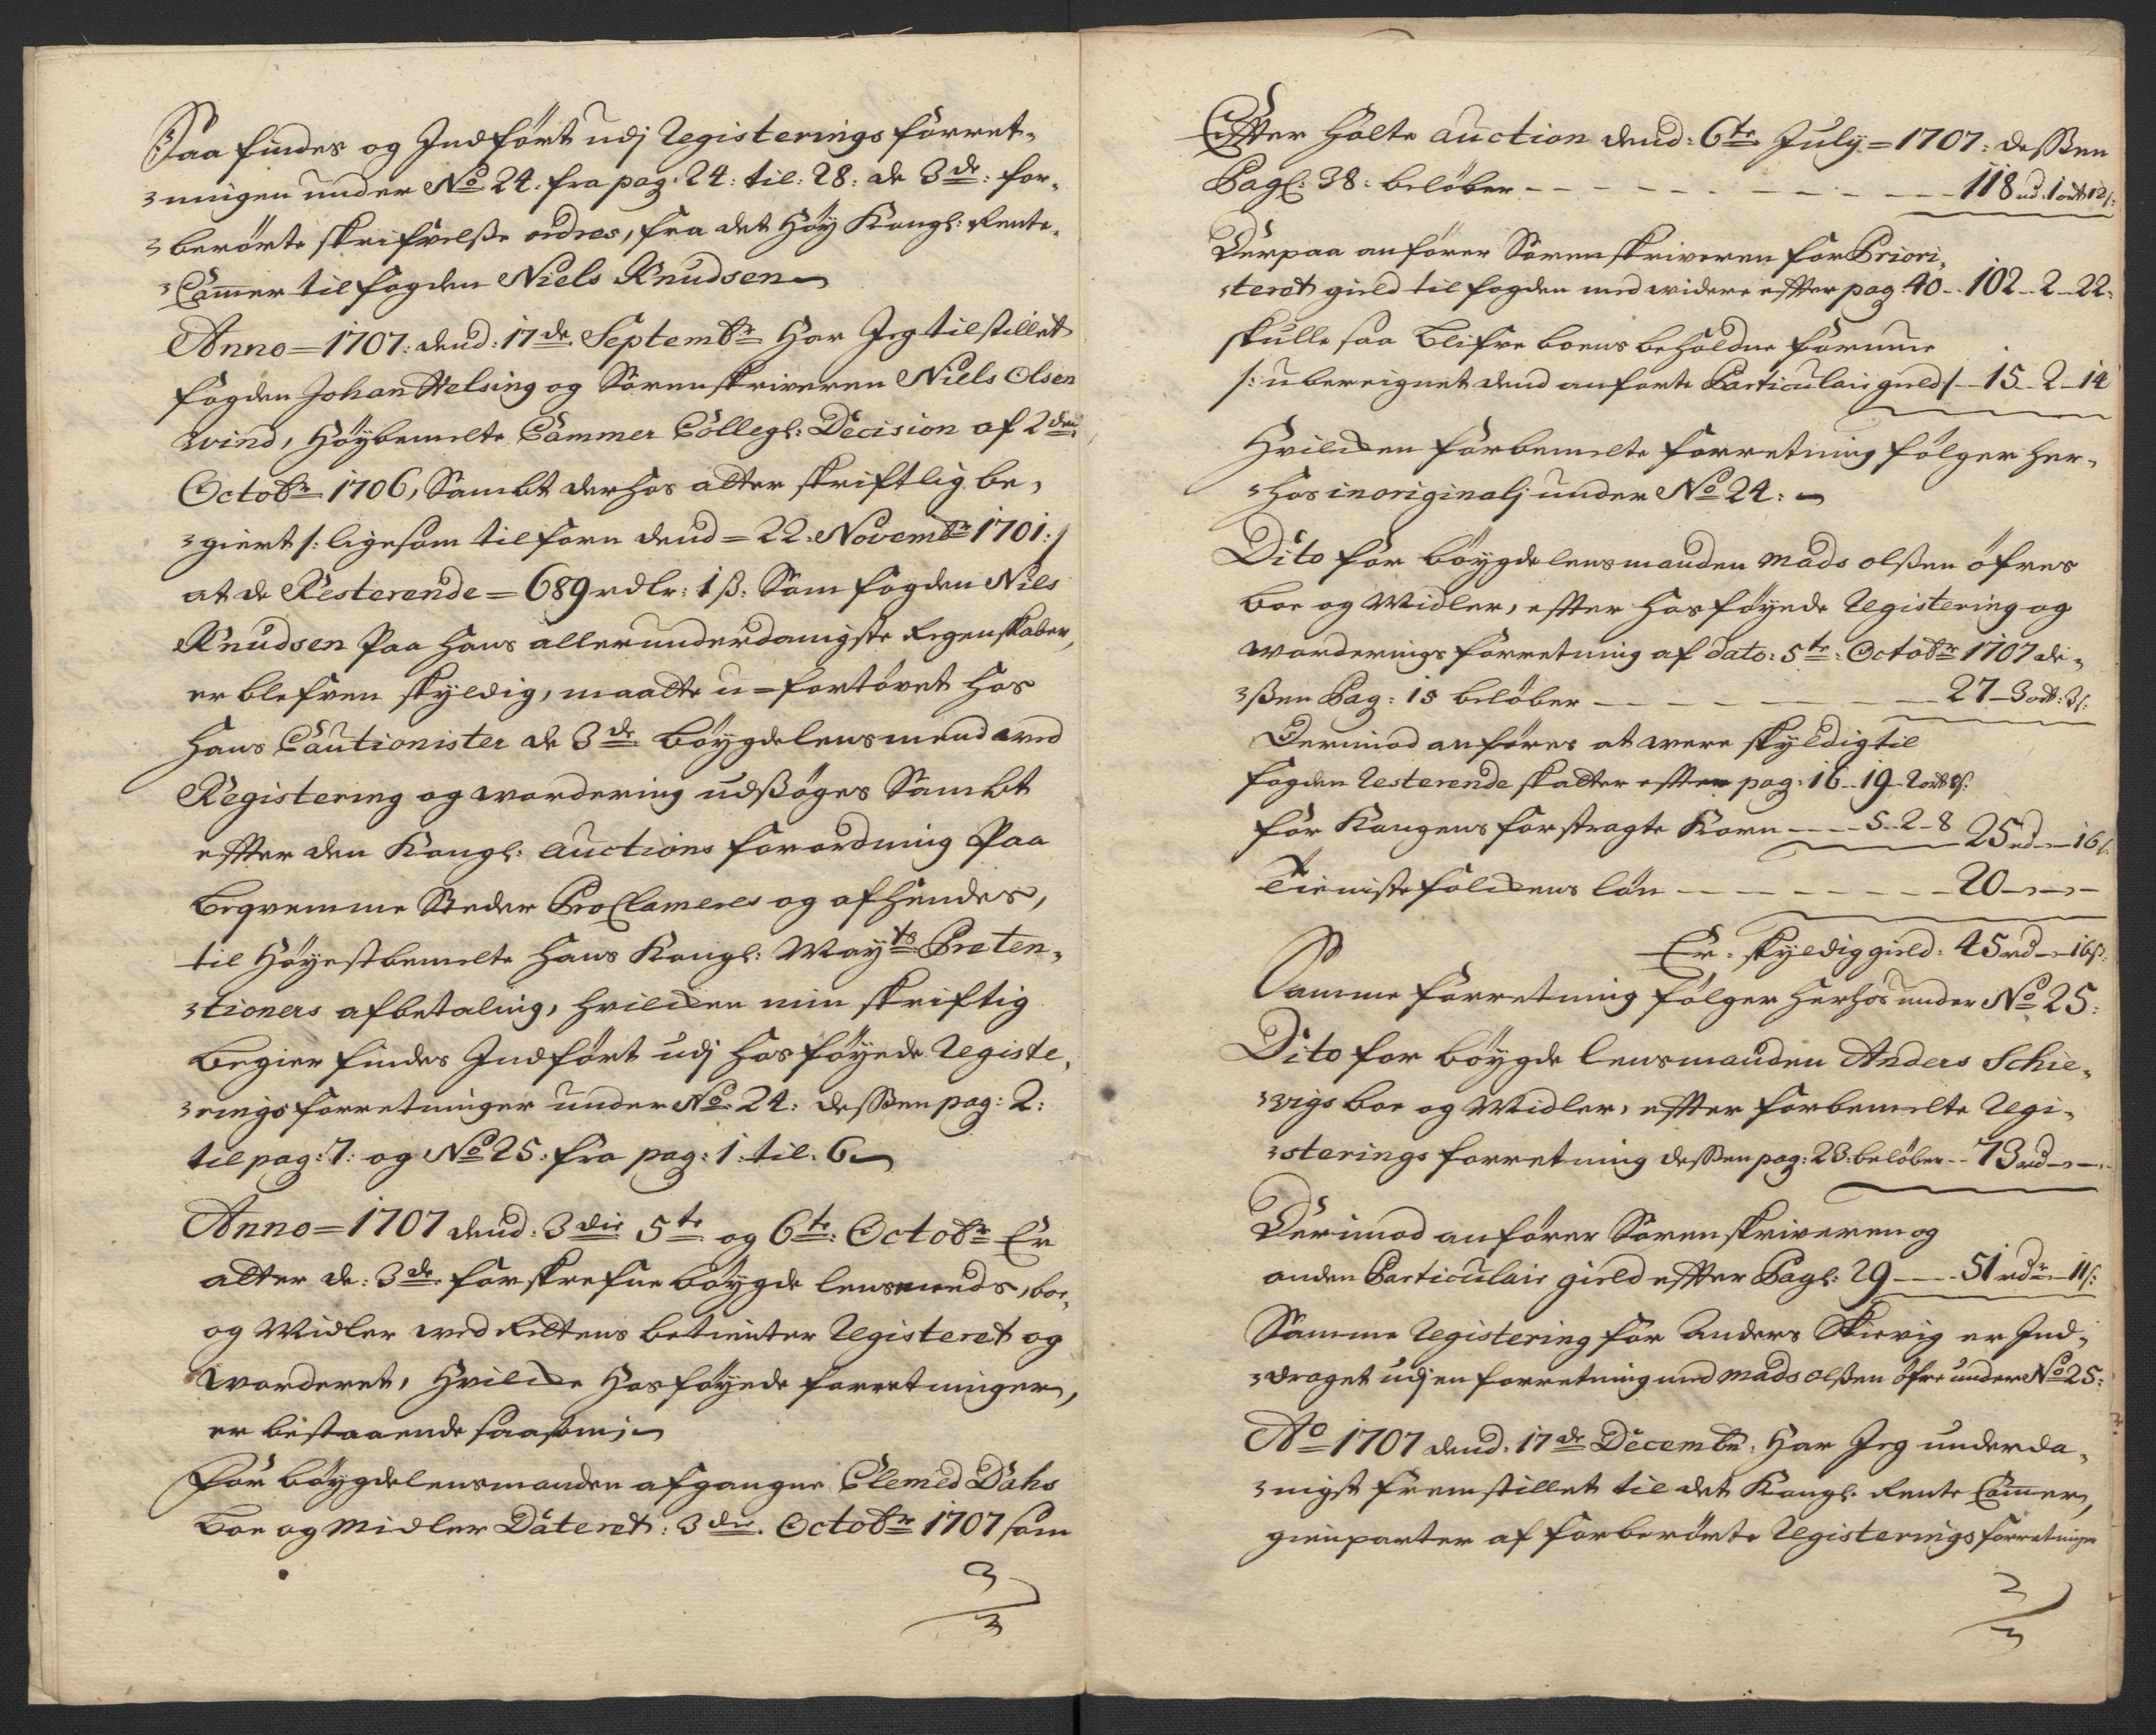 Saa findes og Indført udj Registerings forret-
ningen under No 24. fra pag. 24: til: 28: de 3de: for-
berørte skrifvelsse ordres, fra det Høy Kongl: Rente-
Cammer til fogden Niels Knudsen
Anno = 1707: dend: 17de Septembr Har Jeg tilstillet
fogden Johan Helsing og Sorenskriveren Niels Olsen
wind, Höybemelte Cammer Collegl: Decision af 2den
Octobr 1706, Sambt derhos atter skriftlig be-
giert /: ligesom tilforn dend = 22. Novembr 1701: /
at de Resterende = 689 rdlr: 1 ß: Som fogden Niels
Knudsen Paa hans allerunderdanigste Regenskaber,
er blefven skyldig, maatte u=fortøvet hos
hans Cautionister de 3de böygdelensmend ved
Registering og wordering udssøges Sambt
effter den Kongl: auctions forordning Paa
beqvemme Steder Proclameres og afhendes,
til Høyestbemelte hans Kongl: Mayts Preten-
tioners afbetaling, hvilcken min skriftlig
begier findes Indført udj hosføyede Registe-
rings forretninger under No 24: dessen pag: 2:
til pag: 7: og No 25. fra pag: 1: til. 6
Anno = 1707 dend: 3die 5te og 6te: Octobr Er
atter de: 3de forskrefne böygde lensmends, boe
og Midler ved Rettens betienter Registeret og
worderet, Hvilcke Hosføyede forretninger,
er bestaaende saasom;
For böygdelensmanden afgangne Clemed Dahs
boe og Midler Dateret: 3die. Octobr 1707 som
Effter Holte auction dend: 6te July = 1707: dessen
Pagl: 38: beløber - - - 118 rd. 1 ort 12 s:
Derpaa anfører Sorenskriveren for Priori-
teret gield til fogden med widere effter pag. 40 - 102 - 2 - 22:
skulle saa blifve boens beholdne formue
/: ubereignet dend anførte Particulair gield / - 15 - 2 - 14
Hvilcken forbemelte forretning følger her-
hos in originalj under No 24:
Dito for böygdelensmanden Mads olssen öfres
boe og Midler, effter hosføyede Registering og
worderings forretning af dato: 5te: Octobr 1707 de-
ssen Pag: 15 beløber - - - 27 - 3 ort: 3 s:
Derimod anføres at were skyldig til
fogden Resterende skatter effter pag: 16 - 19 - 2 ort 8 s:
for Kongens forstragte Korn - 5 - 2 - 8 25 rd - 16 s
Tieniste folckens løn - - - 20 - - -
Er: skyldig gield: 45 rd - 16 s:
Samme forretning følger herhos under No 25:
Dito for böygde lensmanden Anders Schie-
vigs boe og Midler, effter forbemelte Regi-
sterings forretning dessen pag: 23: beløber - 73 rd - -
Derimod anfører Sorenskriveren og
anden Particulair gield effter Pagl: 29 - 51 rdr - 11 s:
Samme Registering for Anders Skievig er Ind-
draget udj en forretning med Mads olssen öfre under No 25:
Ao 1707 dend: 17de Decembr: Har Jeg underda-
nigst fremstillet til det Kongl. Rente Cammer,
gienparter af forberørte Registerings forretninger